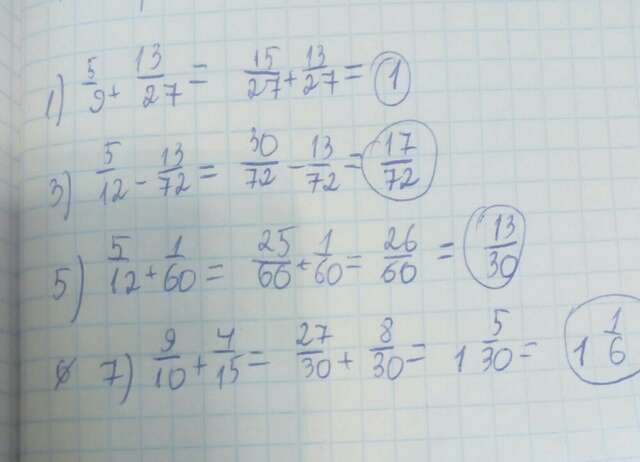 1) 5/9 + 13/27 = 15/27 + 13/27 = 1
3) 5/12 - 13/72 = 30/72 - 13/72 = 17/72
5) 5/12 + 1/60 = 25/60 + 1/60 = 26/60 = 13/30
7) 9/10 + 4/15 = 27/30 + 8/30 = 1 5/30 = 1 1/6